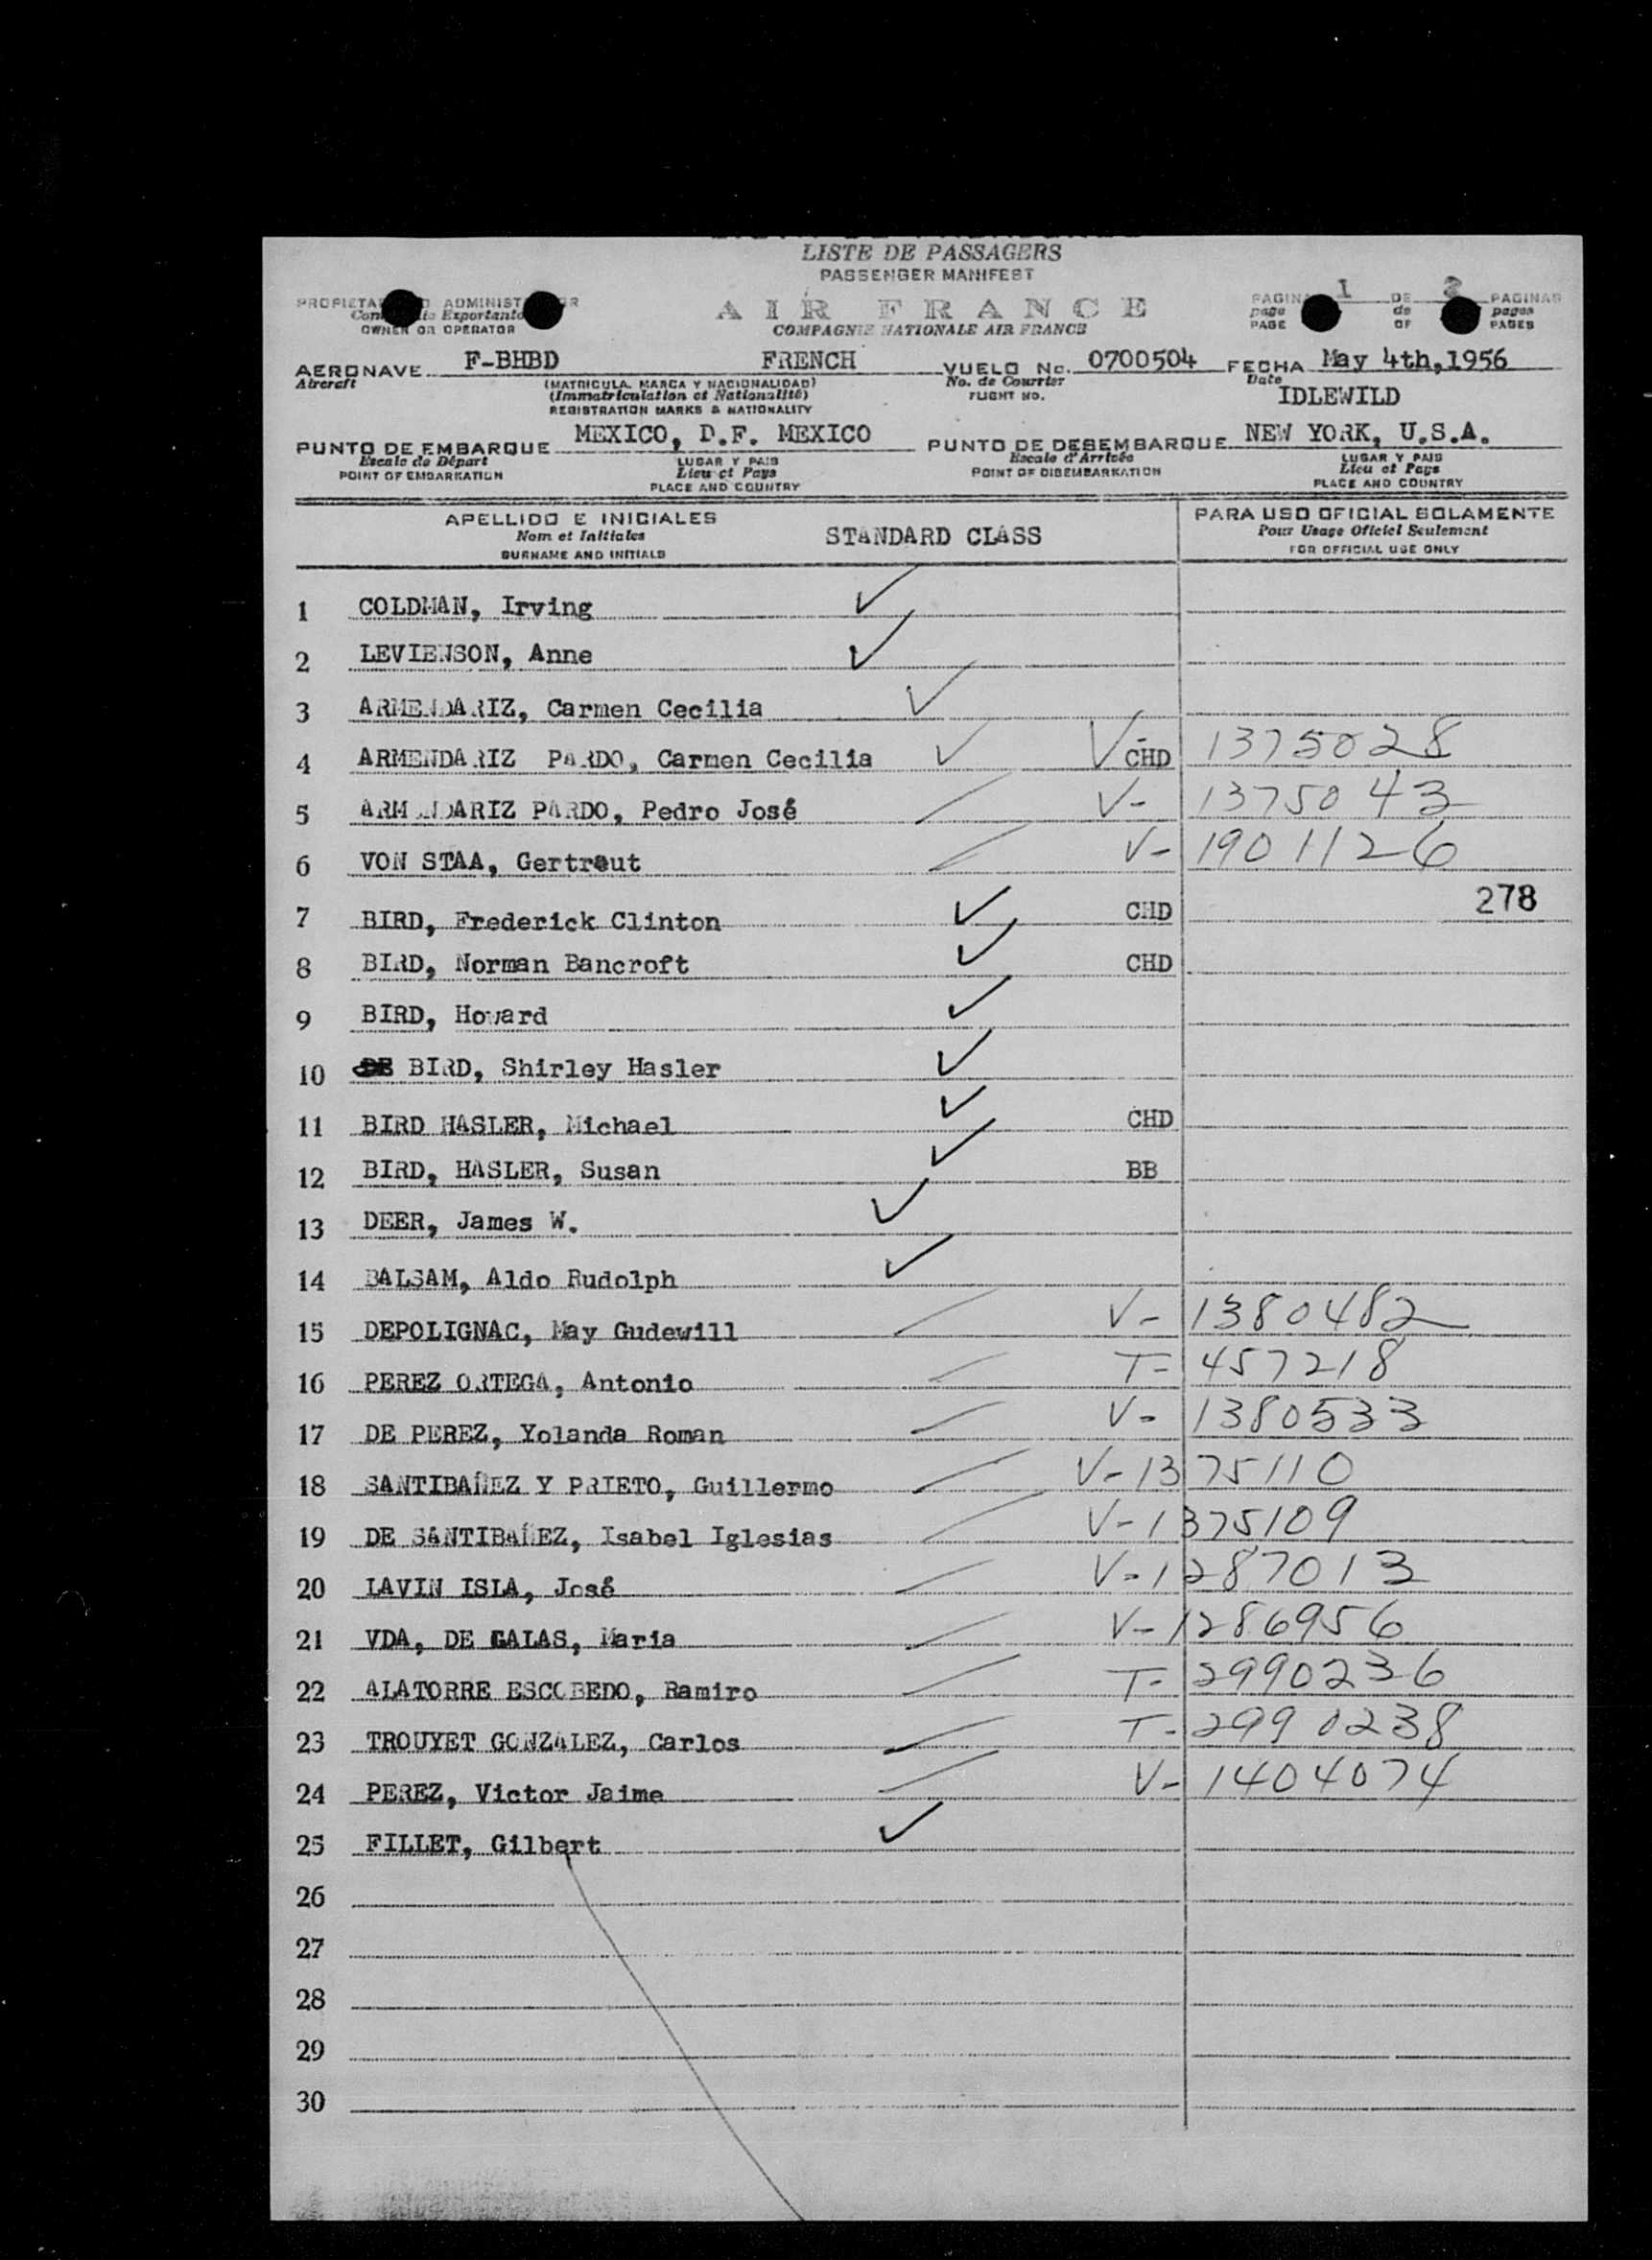 LISTE DE PASSAGERS
PASSENGER MANIFEST
ADMINIST
Exportante
OWNER OR OPERATOR
AIR FRANCE
COMPAGNIE NATIONALE AIR FRANCE
PAGINA 1 DE PAGINAS
page de pages
PAGE OF PAGES
AERONAVE F-BHBD FRENCH VUELO No. 0700504 FECHA May 4th,1956
Aircraft (MATRICULA. MARCA Y NACIONALIDAD) No. de Courrier Date
(Immatriculation et Nationalité) FLIGHT NO. IDLEWILD
REGISTRATION MARKS & NATIONALITY
PUNTO DE EMBARQUE MEXICO, D.F. MEXICO PUNTO DE DESEMBARQUE NEW YORK, U.S.A.
Escale de Départ LUGAR Y PAIS Escale d'Arrivée LUGAR Y PAIS
POINT OF EMBARKATION Lieu et Pays POINT OF DISEMBARKATION Lieu et Pays
PLACE AND COUNTRY PLACE AND COUNTRY
APELLIDO E INICIALES PARA USO OFICIAL SOLAMENTE
Nom et Initiales STANDARD CLASS Pour Usage Oficiel Seulement
SURNAME AND INITIALS FOR OFFICIAL USE ONLY
1 COLDMAN, Irving
2 LEVIENSON, Anne
3 ARMENDARIZ, Carmen Cecilia
4 ARMENDARIZ PARDO, Carmen Cecilia V- CHD 1375028
5 ARMENDARIZ PARDO, Pedro José V- 1375043
6 VON STAA, Gertraut V- 1901126
7 BIRD, Frederick Clinton CHD 278
8 BIRD, Norman Bancroft CHD
9 BIRD, Howard
10 DE BIRD, Shirley Hasler
11 BIRD HASLER, Michael CHD
12 BIRD, HASLER, Susan BB
13 DEER, James W.
14 BALSAM, Aldo Rudolph
15 DEPOLIGNAC, May Gudewill V- 1380482
16 PEREZ ORTEGA, Antonio T- 457218
17 DE PEREZ, Yolanda Roman V- 1380533
18 SANTIBAÑEZ Y PRIETO, Guillermo V-1375110
19 DE SANTIBAÑEZ, Isabel Iglesias V-1375109
20 LAVIN ISLA, José V-1287013
21 VDA, DE GALAS, Maria V-1286956
22 ALATORRE ESCOBEDO, Ramiro T-2990236
23 TROUYET GONZALEZ, Carlos T-2990238
24 PEREZ, Victor Jaime V-1404074
25 FILLET, Gilbert
26
27
28
29
30